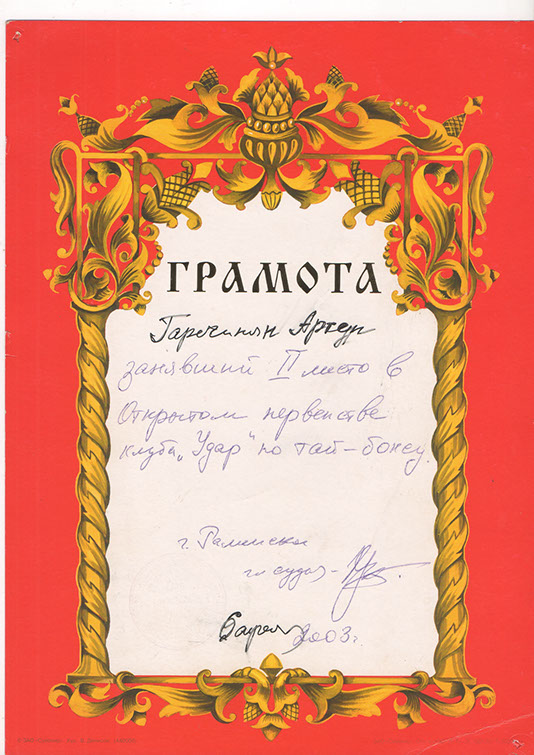 ГРАМОТА
Гарегинян Артур
занявший II место в
Открытом первенстве
клуба „Удар" по тай-боксу.
г. Раменское
гл судья -
6 апреля 2003 г.